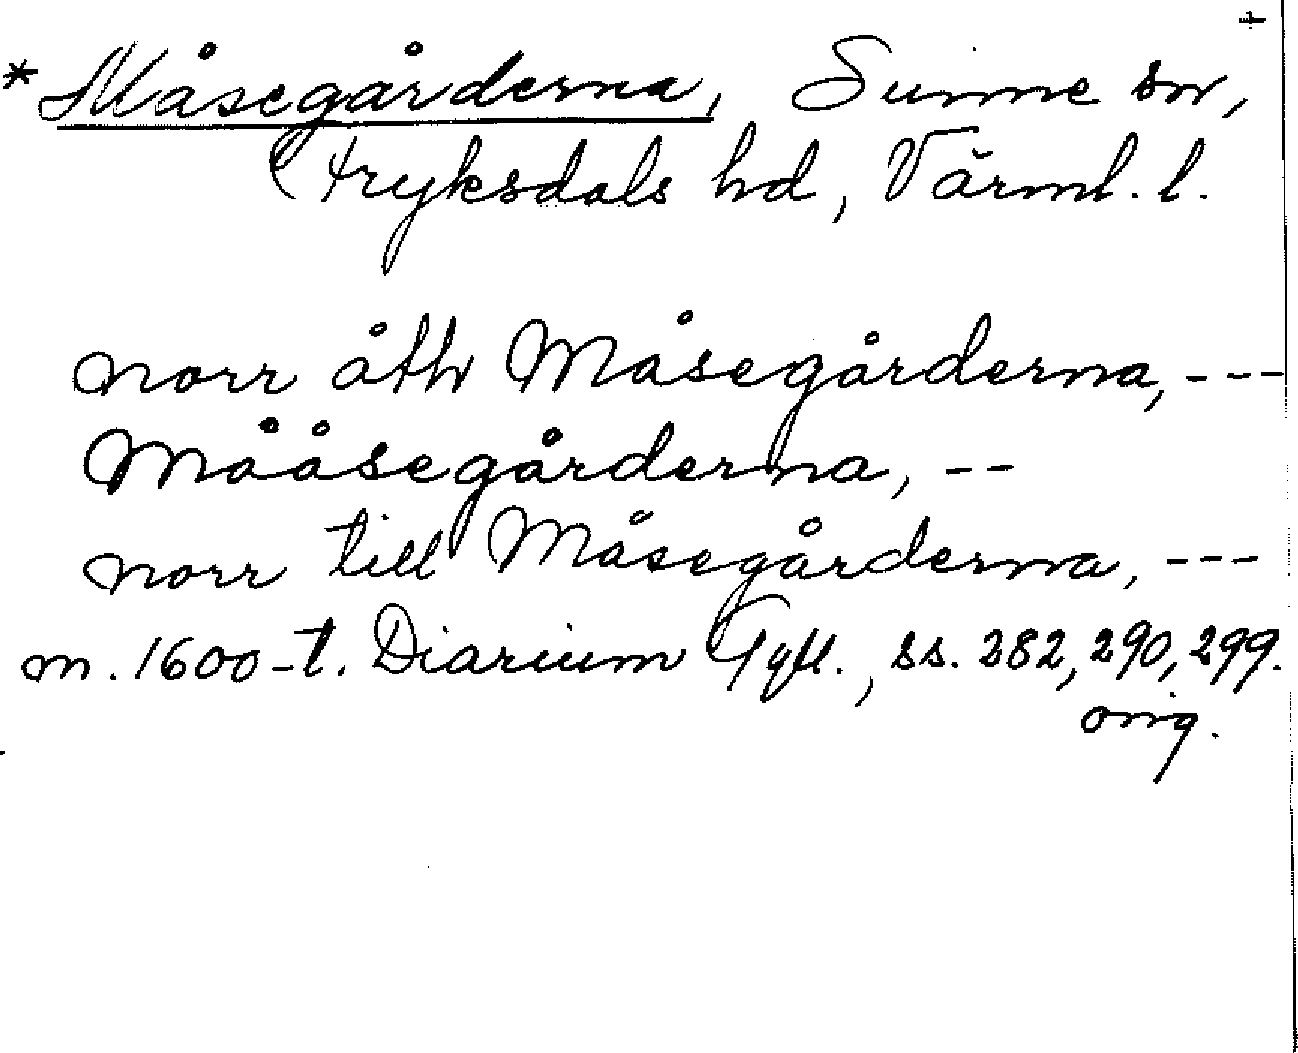 +
* Måsegårderna, Sunne sn,
Fryksdals hd, Värml. l.
norr åth Måsegårderna, ---
Mååsegårderna, --
norr till Måsegårderna, ---
m. 1600-t. Diarium Gyll., ss. 282, 290, 299.
orig.